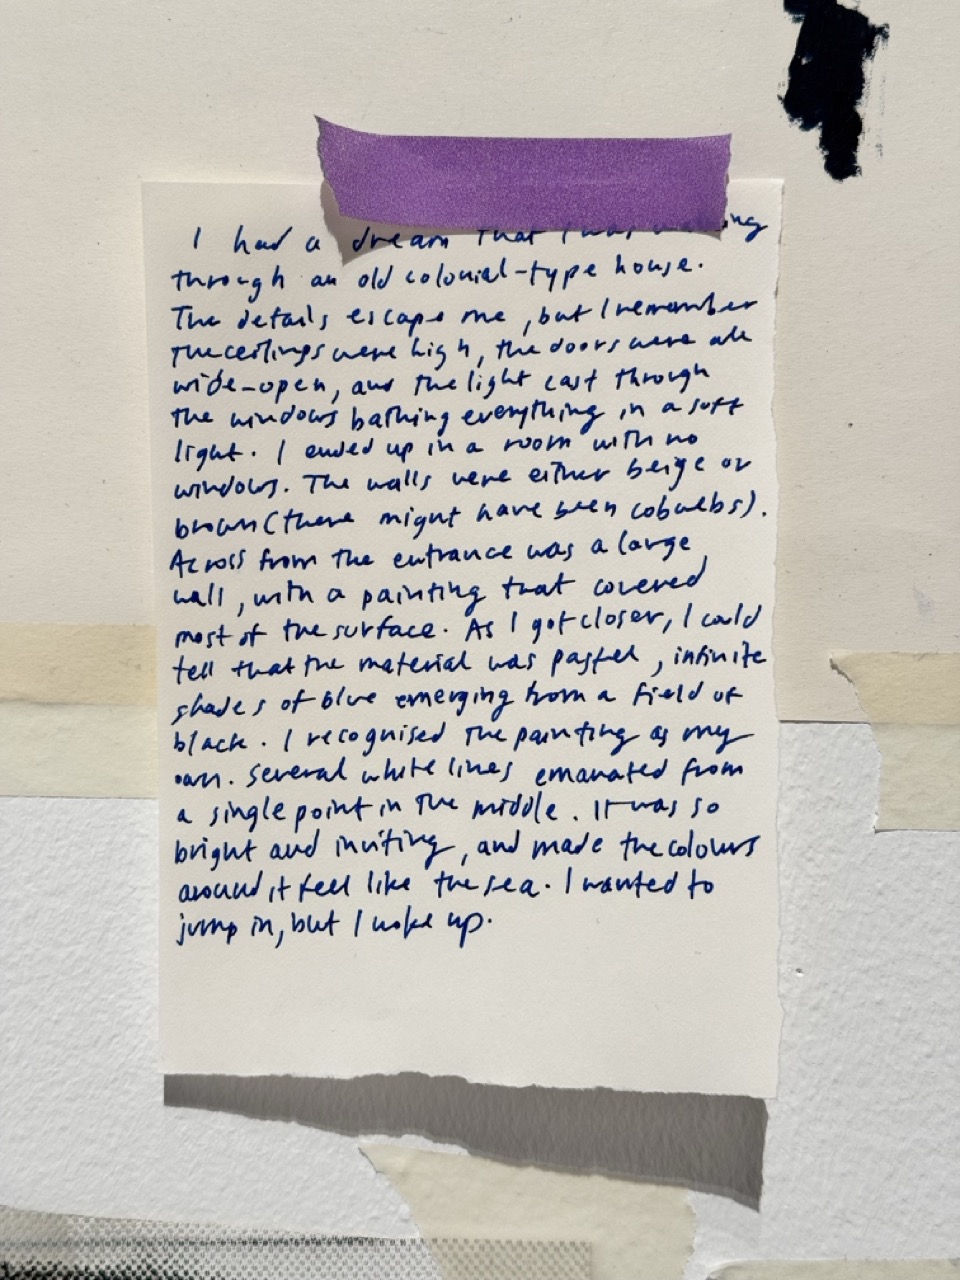 I had a dream that I was walking
through an old colonial-type house.
The details escape me, but I remember
the ceilings were high, the doors were all
wide-open, and the light cast through
the windows bathing everything in a soft
light. I ended up in a room with no
windows. The walls were either beige or
brown (there might have been cobwebs).
Across from the entrance was a large
wall, with a painting that covered
most of the surface. As I got closer, I could
tell that the material was pastel, infinite
shades of blue emerging from a field of
black. I recognised the painting as my
own. Several white lines emanated from
a single point in the middle. It was so
bright and inviting, and made the colours
around it feel like the sea. I wanted to
jump in, but I woke up.